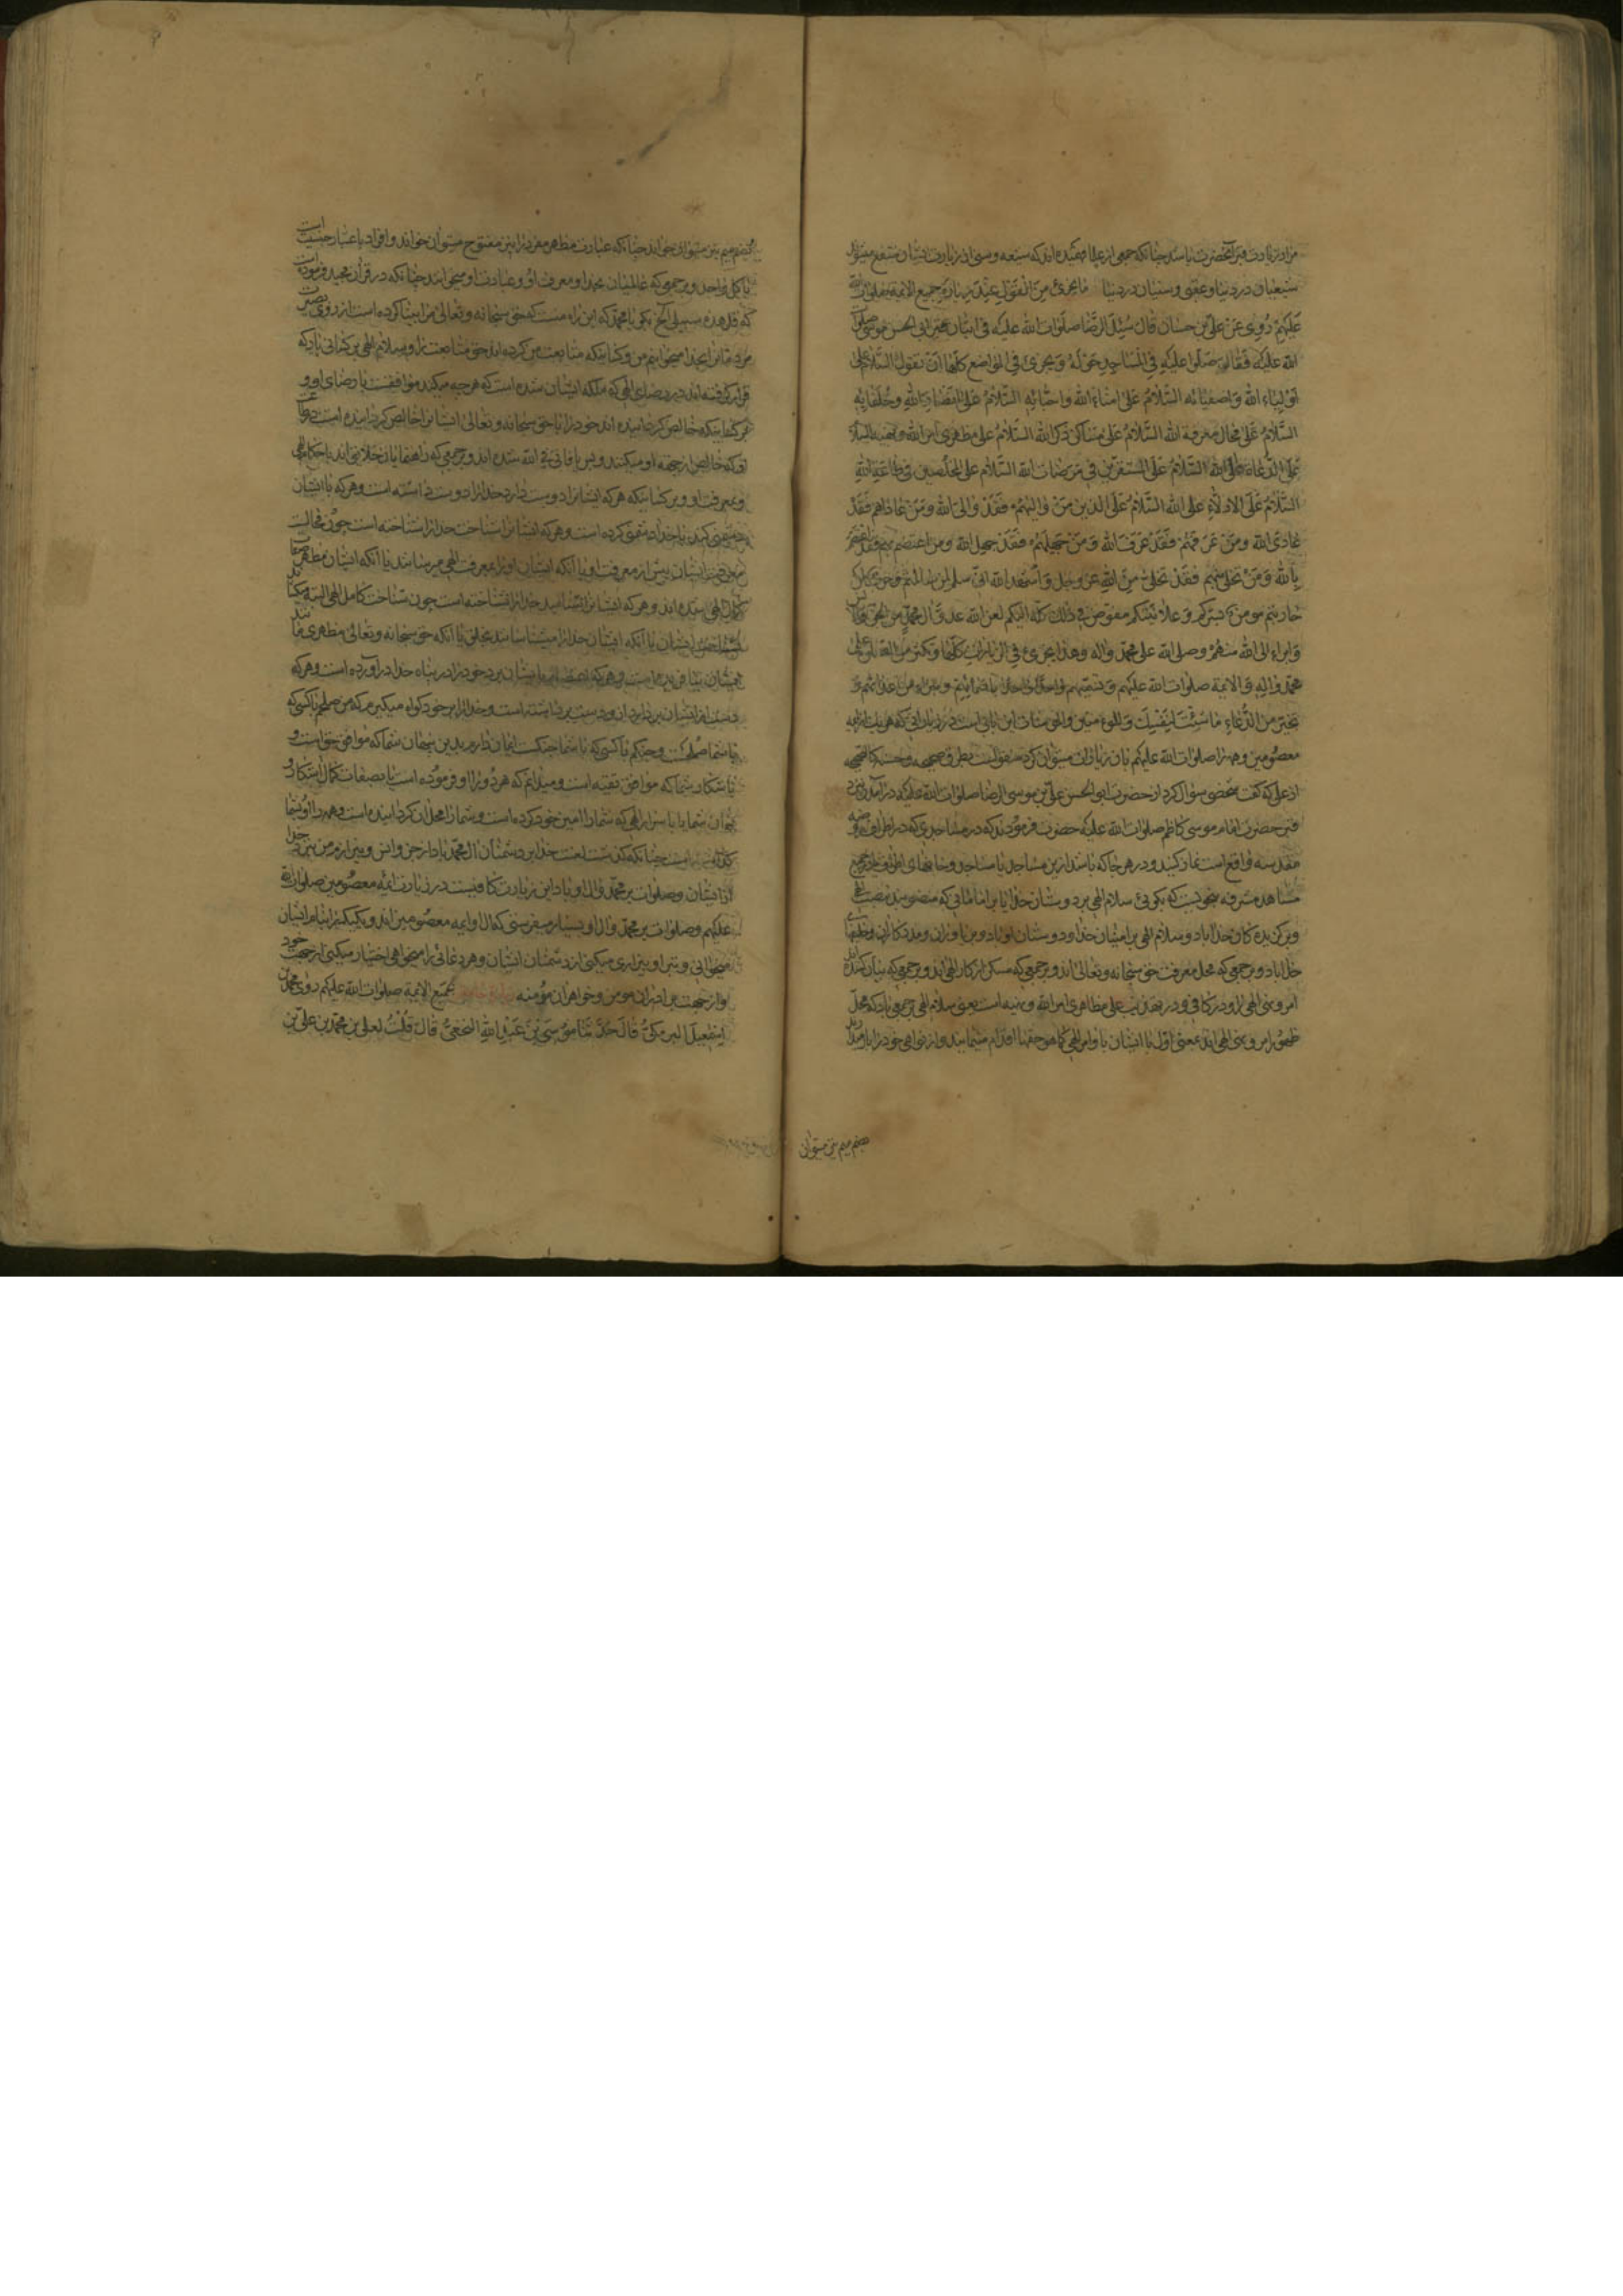 مراد زیارت قبر آنحضرت باشد چنانکه جمعی از علما فهمیده‌اند که شیعه و سنی از زیارت ایشان منتفع میشوند
شیعیان در دنیا و عقبی و سنیان در دنیا ما یجزئ من القول عند زیارة جمیع الائمة صلوات الله
علیهم روی عن علی بن حسان قال سئل الرضا صلوات الله علیه فی اتیان قبر ابی الحسن موسی صلوات
الله علیه فقال صلوا علیه فی المساجد حوله و یجزئ فی المواضع کلها ان تقول السلام علی
اولیاء الله و اصفیائه السلام علی امناء الله و احبائه السلام علی انصار الله و خلفائه
السلام علی محال معرفة الله السلام علی مساکن ذکر الله السلام علی مظهری امر الله و نهیه السلام
علی الدعاة الی الله السلام علی المستقرین فی مرضات الله السلام علی المخلصین فی طاعة الله
السلام علی الادلاء علی الله السلام علی الذین من والیهم فقد والی الله و من عاداهم فقد
عادی الله و من عرفهم فقد عرف الله و من جهلهم فقد جهل الله و من اعتصم بهم فقد اعتصم
بالله و من تخلی منهم فقد تخلی من الله عز و جل و اشهد الله انی سلم لمن سالمتم و حرب لمن
حاربتم مومن بسرکم و علانیتکم مفوض فی ذلک کله الیکم لعن الله عدو آل محمد من الجن و الانس
و ابرأ الی الله منهم و صلی الله علی محمد و اله و هذا یجزئ فی الزیارات کلها و تکثر من الصلوة علی
محمد و اله و الائمة صلوات الله علیهم و تسمیهم واحدا واحدا باسمائهم و تبرأ من اعدائهم و
تخیر من الدعاء ما شئت لنفسک و للمؤمنین و المومنات این بابی است در زیاراتی که هر یک از ائمه
معصومین و حضرات صلوات الله علیهم بآن زیارات میتوان کرد منقولست بطرق صحیحه و حسنه کالصحیحه
از علی که گفت شخصی سؤال کرد از حضرت ابو الحسن علی بن موسی الرضا صلوات الله علیه که در آمدن بنزد
قبر حضرت امام موسی کاظم صلوات الله علیه حضرت فرمودند که در مساجدی که در اطراف روضه
مقدسه واقع است نماز کنید و در هر جا که باشد ازین مساجد یا
مشاهد مشرفه بخوبیست که بگوئی سلام الهی بر دوستان خدا یا بر امامانی که
و برگزیدگان خدا باد و سلام الهی بر امینان خدا و دوستان او باد و بر یاوران و مددکاران و خلیفهای
خدا باد و بر جمعی که محل معرفت حق سبحانه و تعالی‌اند و بر جمعی که مسکن ذکر الهی‌اند و بر جمعی که بیان کننده
امر و نهی الهی‌اند و در کافی و در تهذیب علی مظاهری امر الله و نهیه است یعنی سلام الهی بر جمعی باد که محل
ظهور امر و نهی الهی‌اند بمعنی اول یا ایشان باوامر الهی کما هو حقها اقدام مینمایند و از نواهی خود را باز میدارند
بضم میم نیز میتوان
بضم میم نیز میتوان خواند چنانکه عبارت مظهر مفرد را نیز مفتوح میتوان خواند و افراد باعتبار جنسیت است
یا کل واحد و بر جمعی که عالمیان بخدا و معرفت او و عبادت او میخوانند چنانکه در قرآن مجید فرموده است
که قل هذه سبیلی الخ بگو یا محمد که این راه منست که حق سبحانه و تعالی مرا بینا کرده است از روی بصیرت
مردمانرا بخدا میخوانم من و کسانیکه متابعت من کرده‌اند حق متابعت را و سلام الهی بر کسانی باد که
قرار گرفته‌اند در رضای الهی که ملکه ایشان شده است که هر چه میکنند موافقست با رضای او و
بر کسانیکه خالص گردانیده‌اند خود را با حق سبحانه و تعالی ایشانرا خالص گردانیده است در طاعت
او که خالص از جهت او میکنند و بس یا فانی فی الله شده‌اند و بر جمعی که راهنمایان خلایق‌اند باحکام الهی
و بمعرفت او و بر کسانیکه هر که ایشانرا دوست دارد خدا را دوست داشته است و هر که با ایشان
دشمنی کند با خدا دشمنی کرده است و هر که ایشانرا شناخت خدا را شناخته است چون محالست
معرفت ایشان پیش از معرفت او یا آنکه ایشان او را بمعرفت الهی میرسانند یا آنکه ایشان مظهر صفات
کمال الهی شده‌اند و هر که ایشانرا نشناسد خدا را نشناخته است چون شناخت کامل الهی
ایشان یا آنکه ایشان خدا را میشناسانند بخلق یا آنکه حق سبحانه و تعالی مظهری
ایشان بنا فرموده است و هر که اعتصام بایشان برد خود را در پناه خدا در آورده است و هر که
دست از ایشان بردارد از خدا دست برداشته است و خدا را بر خود گواه میگیرم که من صلحم با کسی که
با شما صلحست و جنگم با کسی که با شما جنگست ایمان دارم بدین پنهان شما که موافق حق است و
باشکار شما که موافق تقیه است و میدانم که هر دو را او فرموده است
پنهان شما یا باسرار الهی که شما را امین خود کرده است و شما را محل آن گردانیده است و همه را
است چنانکه گذشت لعنت خدا بر دشمنان آل محمد باد از جن و انس و بیزارم من بنزد خدا
از ایشان و صلوات بر محمد و آل او باد این زیارت کافیست در زیارت ائمه معصومین صلوات الله
علیهم و صلوات بر محمد و آل او بسیار میفرستی که آل او ائمه معصومین‌اند و یک یک را بنام ایشان
میخوانی و تبرا و بیزاری میکنی از دشمنان ایشان و هر دعائی را میخواهی اختیار میکنی از جهت خود
و از جهت برادران مومن و خواهران مؤمنه زیارة جامعة لجمیع الائمة صلوات الله علیهم روی محمد بن
اسمعیل البرمکی قال حدثنا موسی بن عبد الله النخعی قال قلت لعلی بن محمد بن علی بن